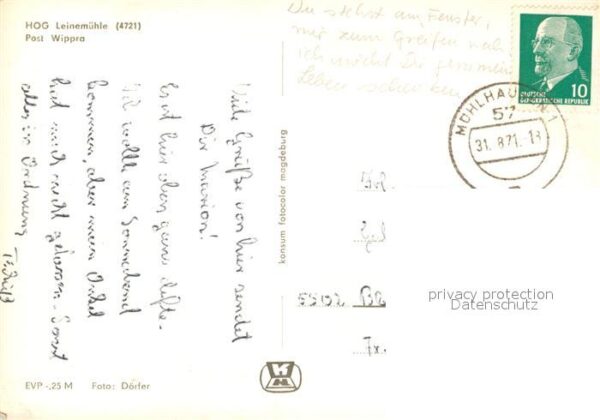 HOG Leinemühle (4721)
Post Wippra
Du stehst am Fenster,
nur zum Greifen nah
ich möcht Dir
Leben
DEUTSCHE
DEMOKRATISCHE REPUBLIK 10
MÜHLHAUSEN 1
57
31.8.71.-18
Viele Grüße von hier sendet
Dir Marion!
Es ist hier oben ganz dufte.
Wir wollten am Sonnabend
kommen, aber mein Onkel
hat mich nicht gelassen. Sonst
alles in Ordnung
Tschüß
konsum fotocolor magdeburg
Frl.
privacy protection
Datenschutz
EVP -,25 M Foto: Dörfer